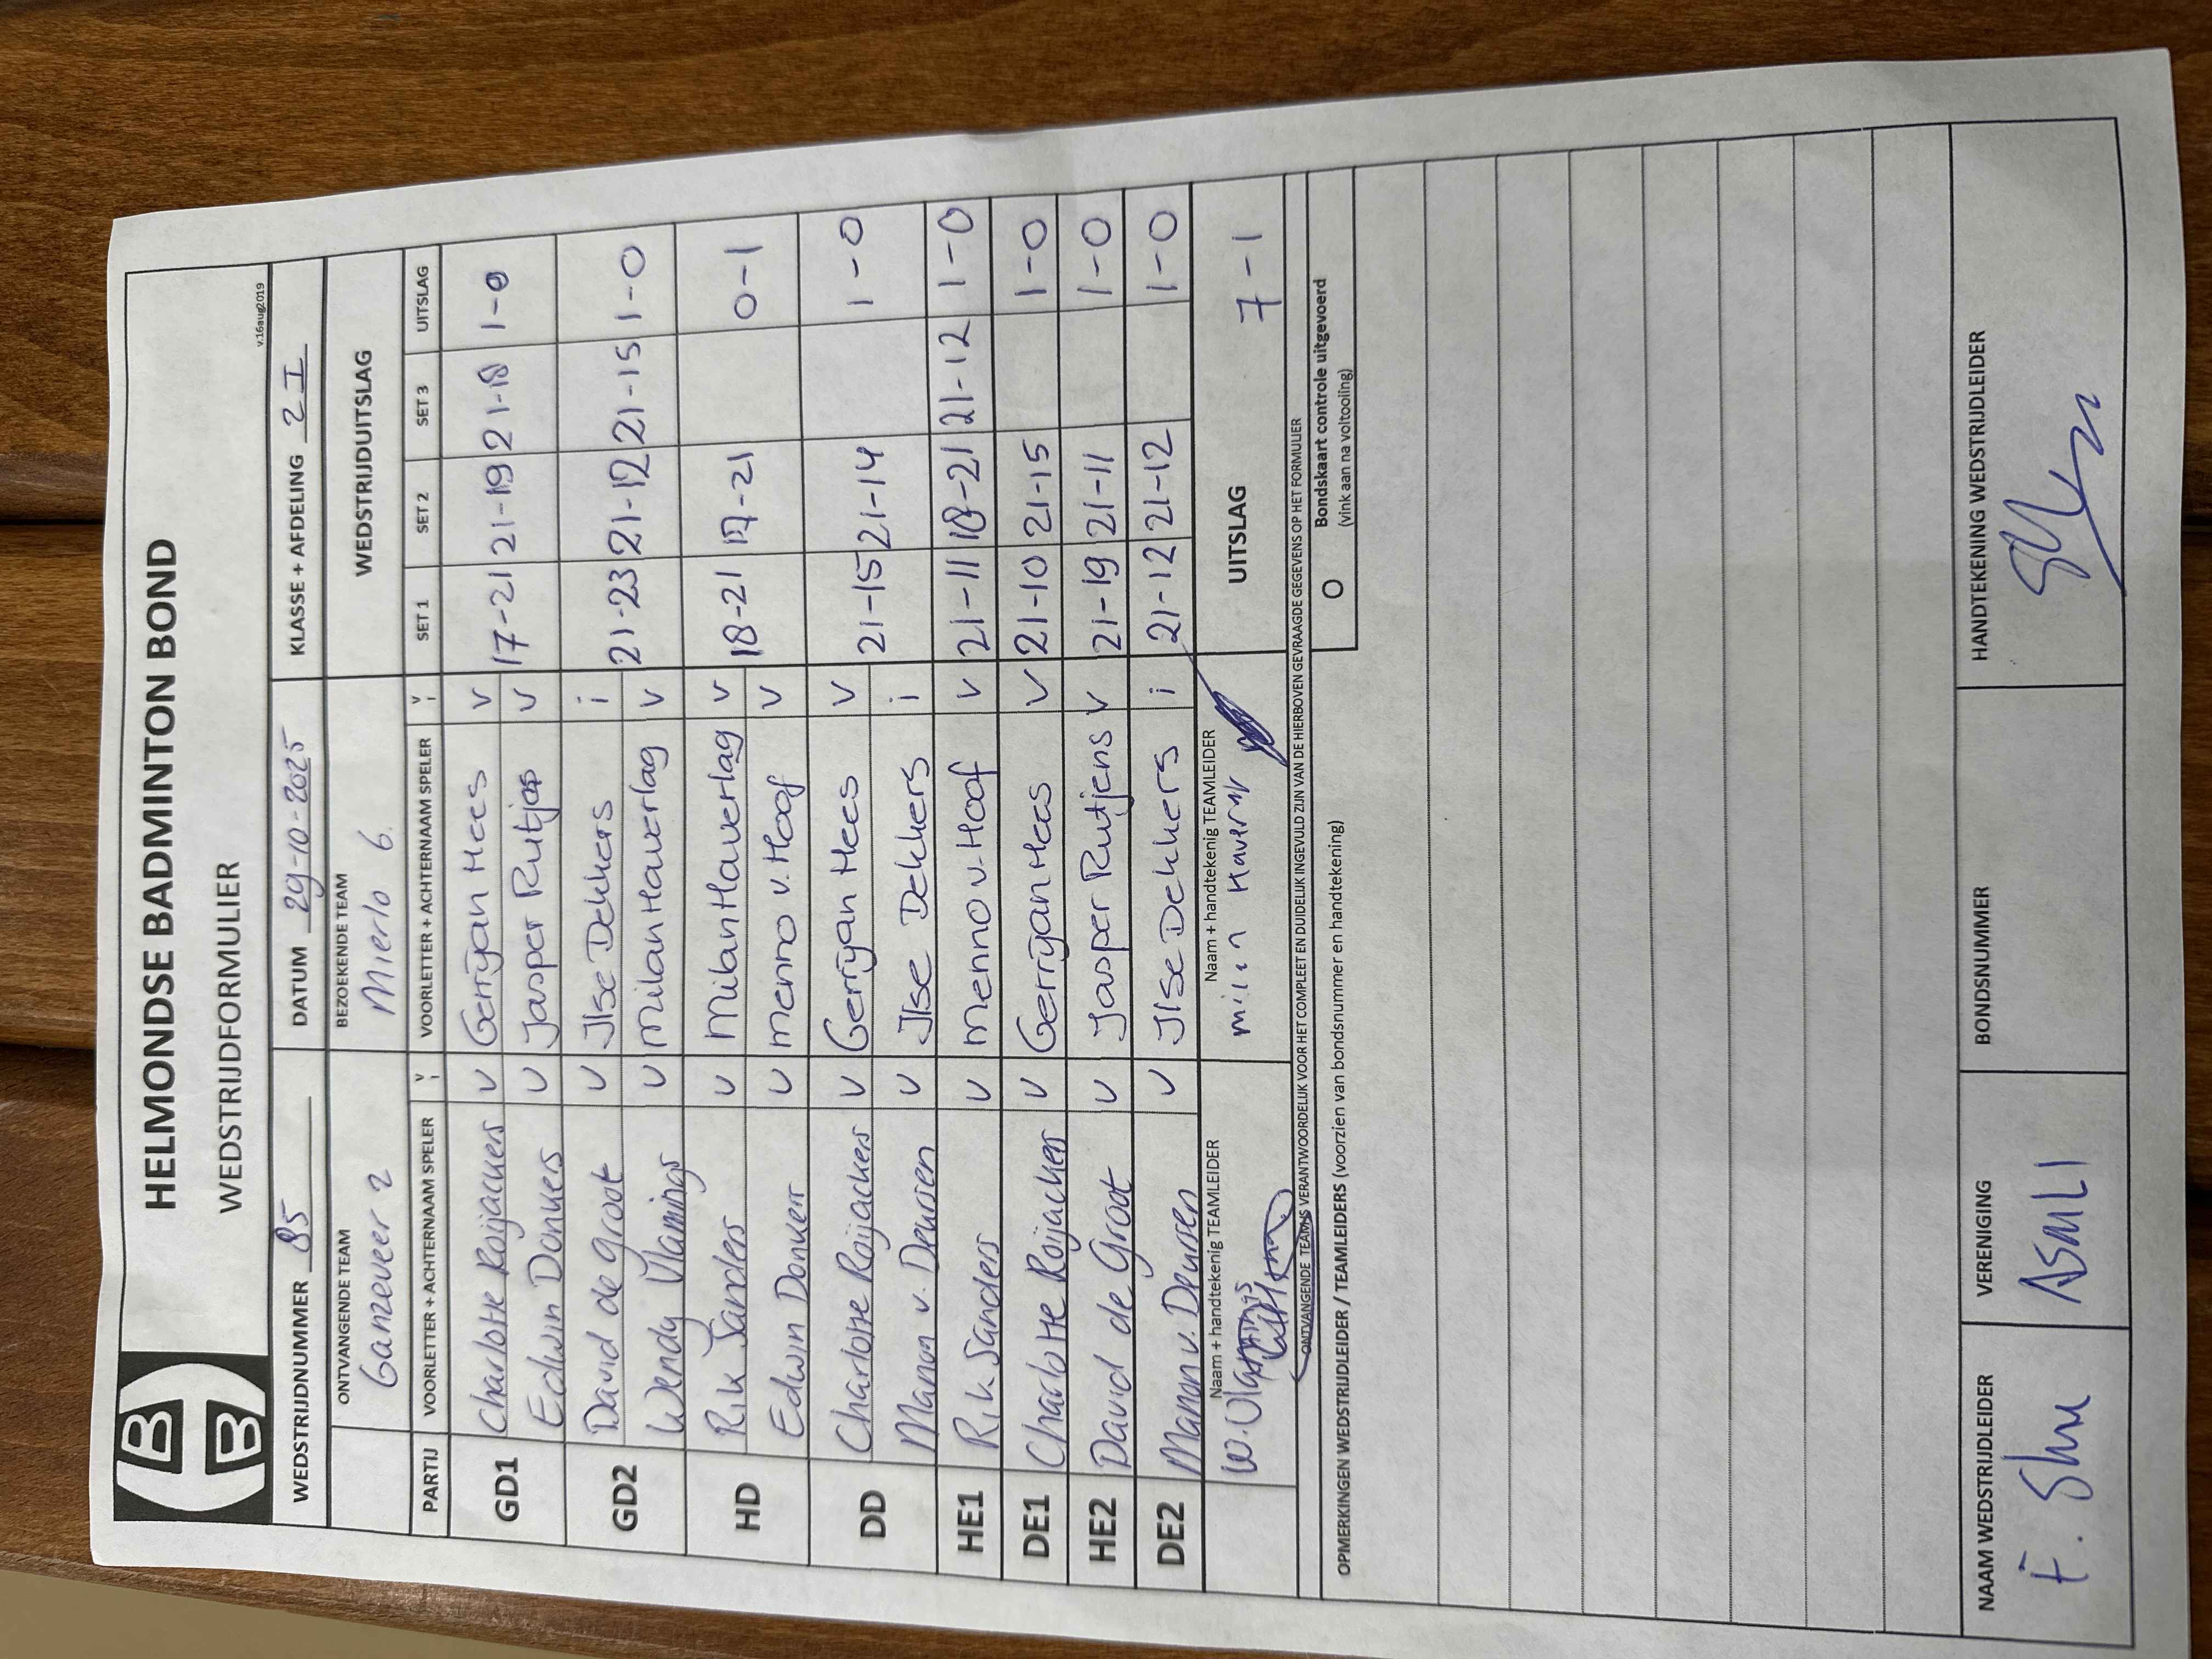 HELMONDSE BADMINTON BOND
WEDSTRIJDFORMULIER
v.16aug2019
WEDSTRIJDNUMMER 85 DATUM 29-10-2025 KLASSE + AFDELING 2 I
ONTVANGENDE TEAM BEZOEKENDE TEAM WEDSTRIJDUITSLAG
Ganzeveer 2 Mierlo 6.
PARTIJ VOORLETTER + ACHTERNAAM SPELER V i VOORLETTER + ACHTERNAAM SPELER V i SET 1 SET 2 SET 3 UITSLAG
GD1 Charlotte Roijackers v Gerryan Hees v 17-21 21-19 21-18 1-0
Edwin Donkers v Jasper Rutjes v
GD2 David de Groot v Ilse Dekkers i 21-23 21-12 21-15 1-0
Wendy Vlamings v Milan Haverlag v
HD Rik Sanders v Milan Haverlag v 18-21 17-21 0-1
Edwin Donkers v Menno v. Hoof v
DD Charlotte Roijackers v Gerryan Hees v 21-15 21-14 1-0
Manon v. Deursen v Ilse Dekkers i
HE1 Rik Sanders v Menno v. Hoof v 21-11 18-21 21-12 1-0
DE1 Charlotte Roijackers v Gerryan Hees v 21-10 21-15 1-0
HE2 David de Groot v Jasper Rutjens v 21-19 21-11 1-0
DE2 Manon v. Deursen v Ilse Dekkers i 21-12 21-12 1-0
Naam + handtekenig TEAMLEIDER Naam + handtekenig TEAMLEIDER UITSLAG 7-1
W. Vlamings
ONTVANGENDE TEAM IS VERANTWOORDELIJK VOOR HET COMPLEET EN DUIDELIJK INGEVULD ZIJN VAN DE HIERBOVEN GEVRAAGDE GEGEVENS OP HET FORMULIER
O Bondskaart controle uitgevoerd
(vink aan na voltooling)
OPMERKINGEN WEDSTRIJDLEIDER / TEAMLEIDERS (voorzien van bondsnummer en handtekening)
NAAM WEDSTRIJDLEIDER VERENIGING BONDSNUMMER HANDTEKENING WEDSTRIJDLEIDER
F.